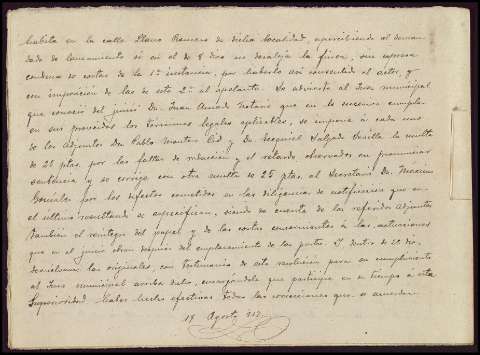 habita en la calle Llano Romero de dicha localidad, apercibiendo al deman-
dado de lanzamiento si en el de 8 dias no desaloja la finca, sin expresa
condena de costas de la 1ª instancia, por haberlo asi consentido el actor, y
con imposición de las de esta 2ª al apelante. Se advierta al Juez municipal
que conoció del juicio Dn. Juan Amado Notario que en lo sucesivo cumpla
en sus proveidos los términos legales aplicables, se impone á cada uno
de los Adjuntos Dn. Pablo Montes Cid y Dn. Ezequiel Salgado la multa
de 25 ptas. por las faltas de redacción y el retardo observados en pronunciar
sentencia y se corrige con otra multa de 25 ptas. al Secretario Dn.
González por los defectos cometidos en las diligencias de notificacion que en
el ultimo resultando se especifican, siendo de cuenta de los referidos Adjuntos
tambien el reintegro del papel y de las costas concernientes á las actuaciones
que en el juicio obran despues del emplazamiento de las partes. Y dentro de 2º dia,
devuélvanse los originales, con testimonio de esta resolución para su cumplimiento
al Juez municipal arriba dicho, encargándole que participe en su tiempo á esta
Superioridad haber hecho efectivas todas las correcciones que se acuerdan
19 Agosto 912.